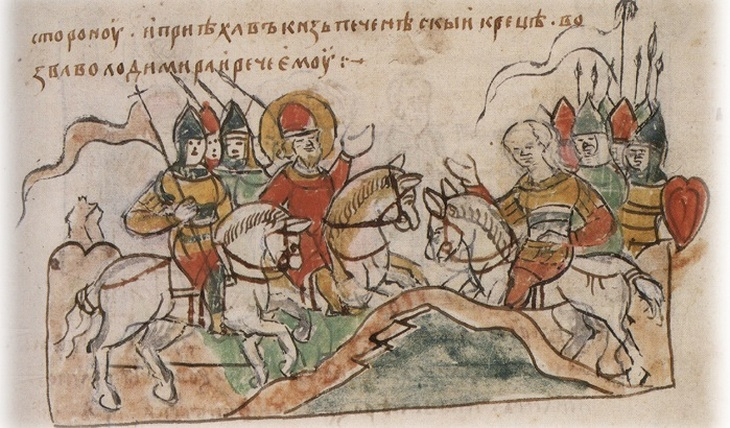 стороноу · и приѣхавъ кнзь печенѣскыи к рецѣ · во
зва володимира и рече ємоу :~